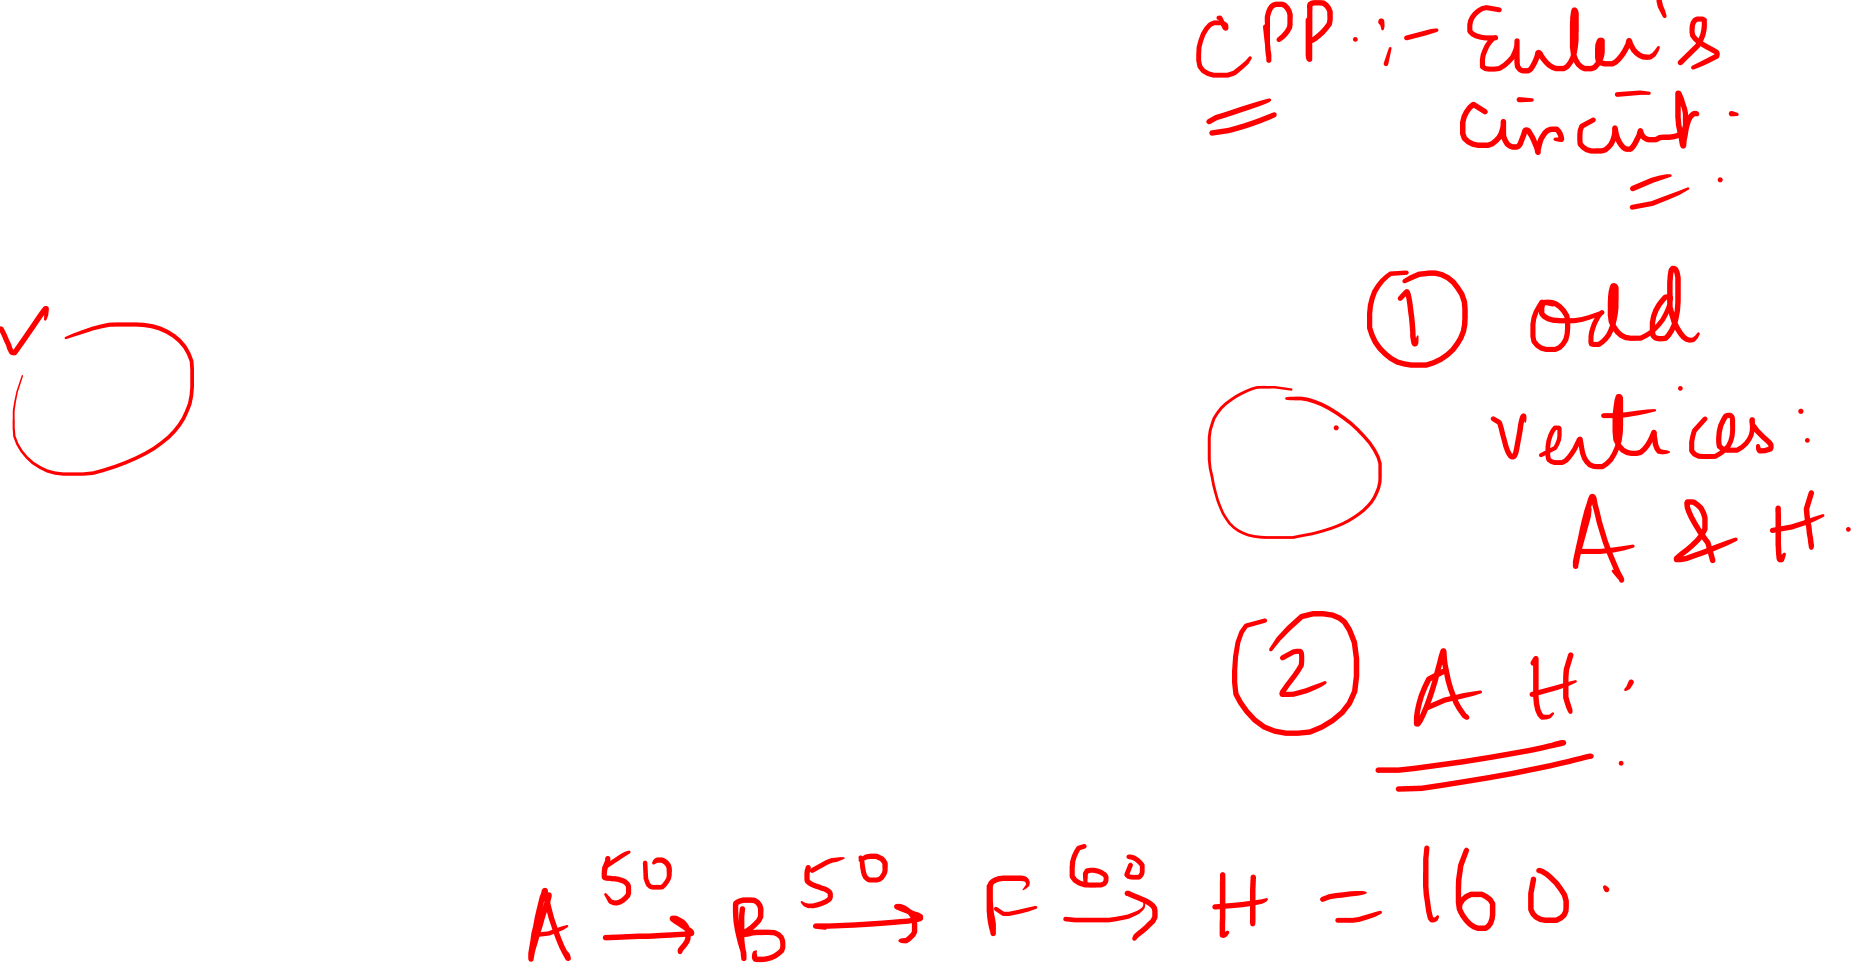 CPP. :- Euler's
Circuit.
① odd
vertices:
A & H.
② A H.
A 50→ B 50→ F 60→ H = 160.